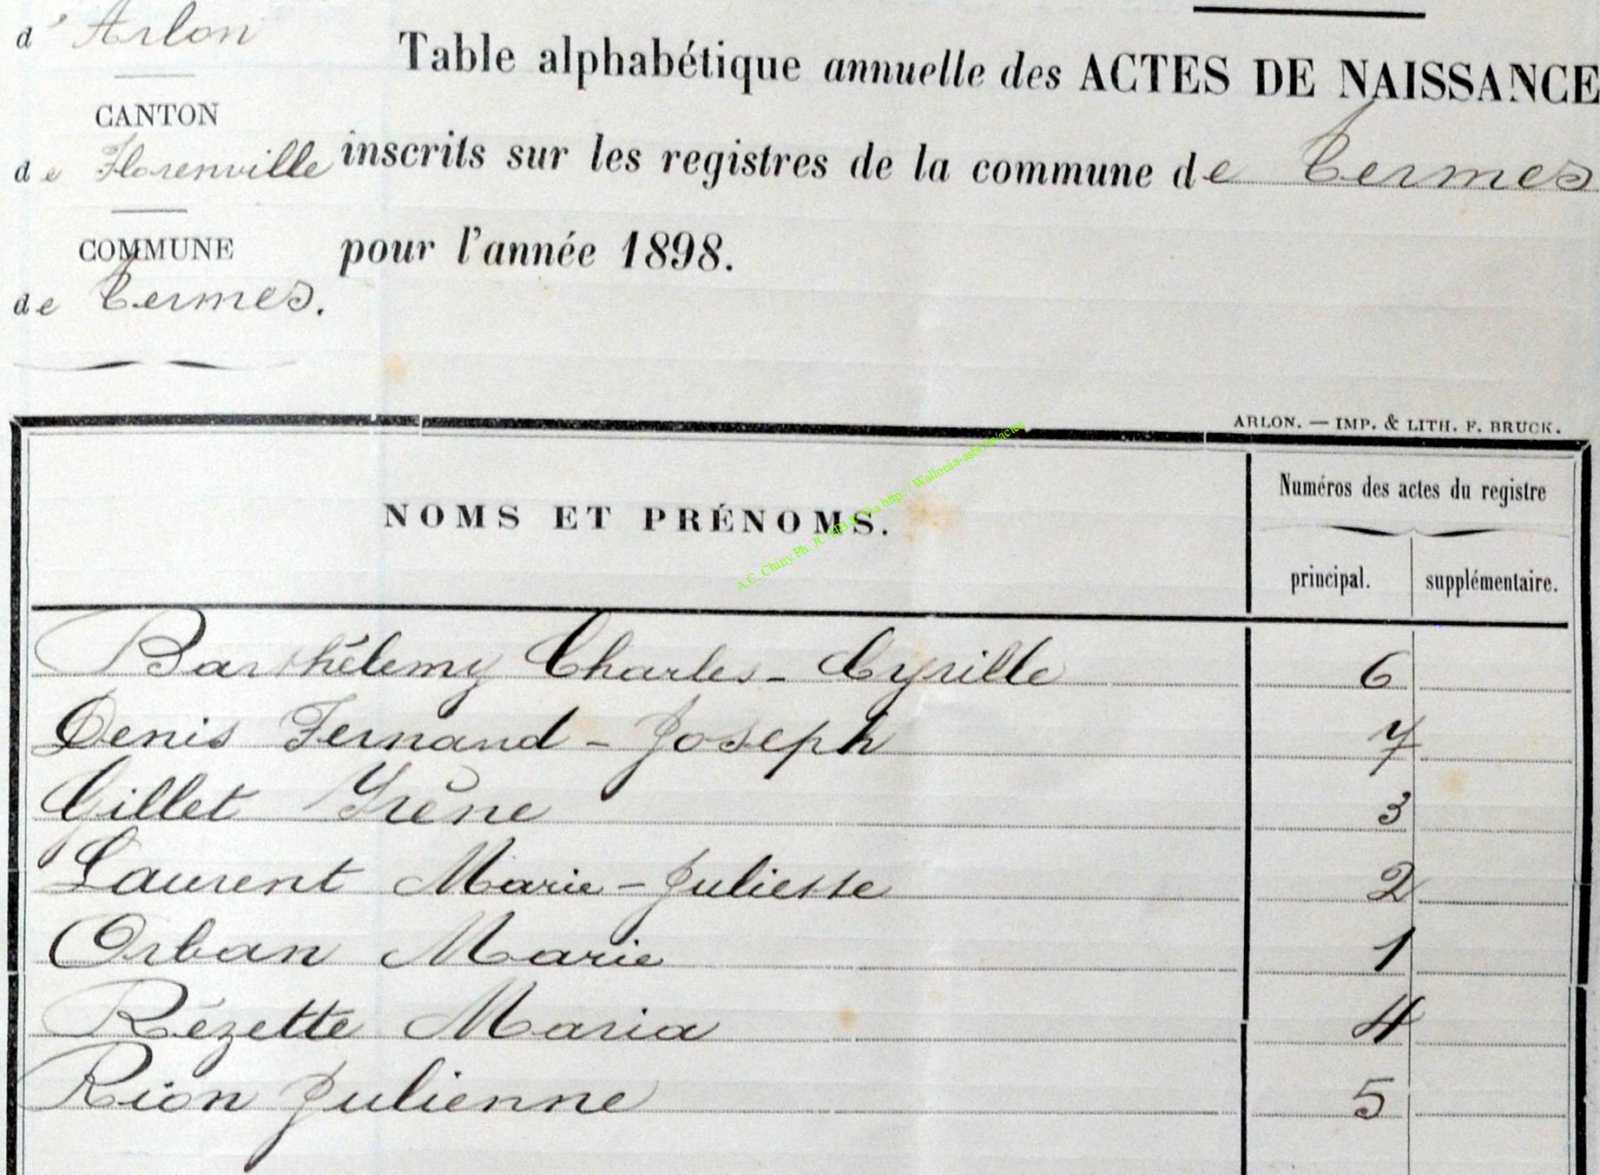 d'Arlon
CANTON
de Florenville
COMMUNE
de Termes.
Table alphabétique annuelle des ACTES DE NAISSANCE
inscrits sur les registres de la commune de Termes
pour l'année 1898.
ARLON. — IMP. & LITH. F. BRUCK.
NOMS ET PRÉNOMS.
Numéros des actes du registre
principal. supplémentaire.
Barthélemy Charles-Cyrille 6
Denis Fernand-Joseph 7
Gillet Irène 3
Laurent Marie-Juliette 2
Orban Marie 1
Rézette Maria 4
Rion Julienne 5
A.C. Chiny Ph. R. http://Wallonia-